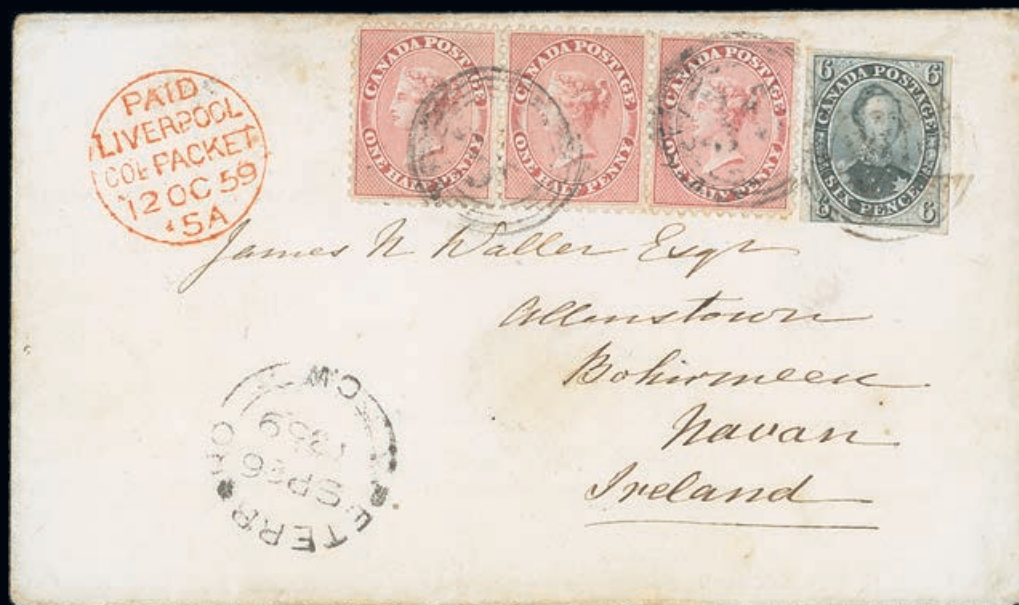 PAID
LIVERPOOL
COL PACKET
12 OC 59
5A
CANADA POSTAGE
ONE HALF PENNY
CANADA POSTAGE
ONE HALF PENNY
CANADA POSTAGE
ONE HALF PENNY
6 6
CANADA POSTAGE
SIX PENCE
6 6
James N Waller Esqr
Allenstown
Bohirmeen
Navan
Ireland
C.W
1859
SP 26
PETERBORO